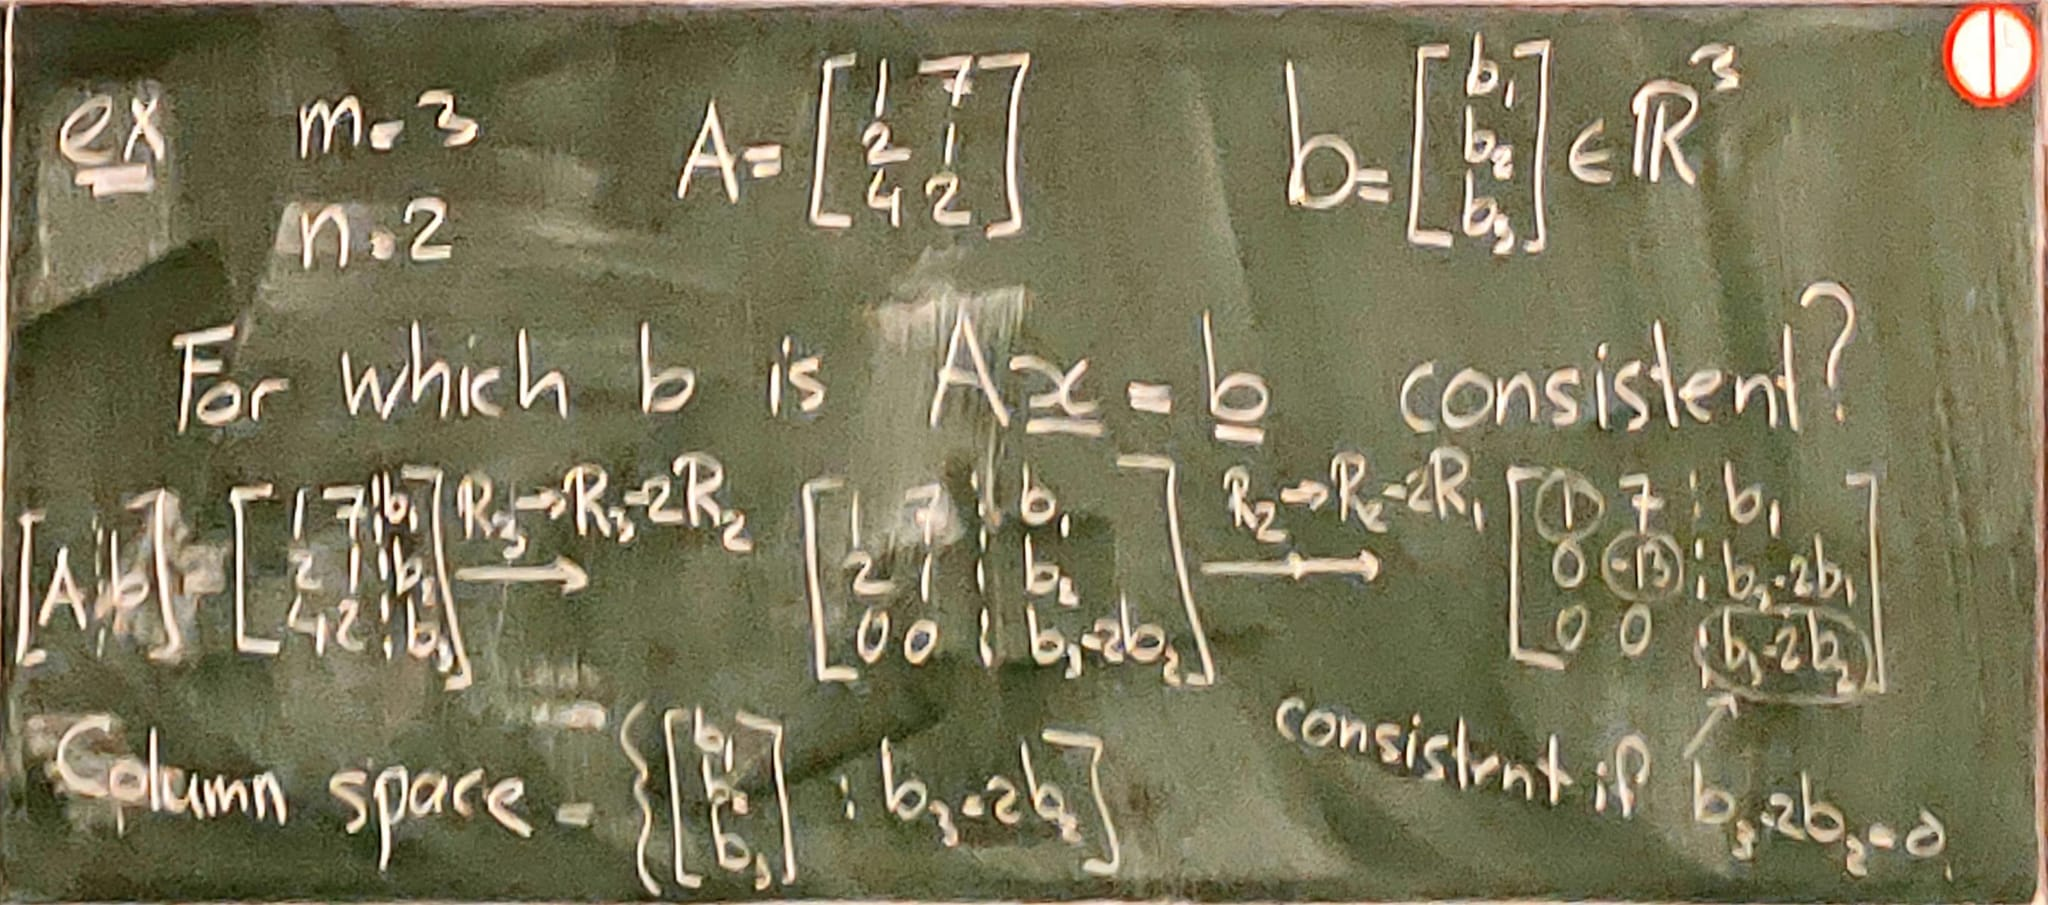 ex m = 3 A = [1 7; 2 1; 4 2] b = [b₁; b₂; b₃] ∈ ℝ³
n = 2
For which b is Ax = b consistent?
[A ¦ b] = [1 7 ¦ b₁; 2 1 ¦ b₂; 4 2 ¦ b₃] R₃→R₃-2R₂ ⟶ [1 7 ¦ b₁; 2 1 ¦ b₂; 0 0 ¦ b₃-2b₂] R₂→R₂-2R₁ ⟶ [1 7 ¦ b₁; 0 -13 ¦ b₂-2b₁; 0 0 ¦ b₃-2b₂]
Column space = {[b₁; b₂; b₃] : b₃=2b₂}
consistent if b₃-2b₂=0